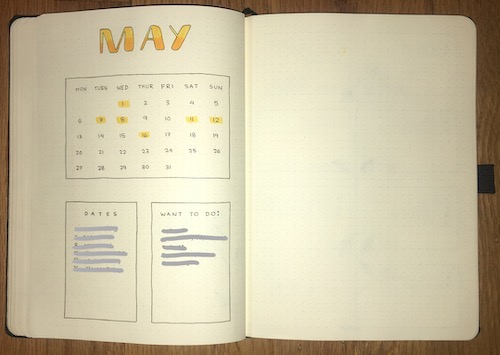 MAY
MON TUES WED THUR FRI SAT SUN
1 2 3 4 5
6 7 8 9 10 11 12
13 14 15 16 17 18 19
20 21 22 23 24 25 26
27 28 29 30 31
DATES
WANT TO DO: